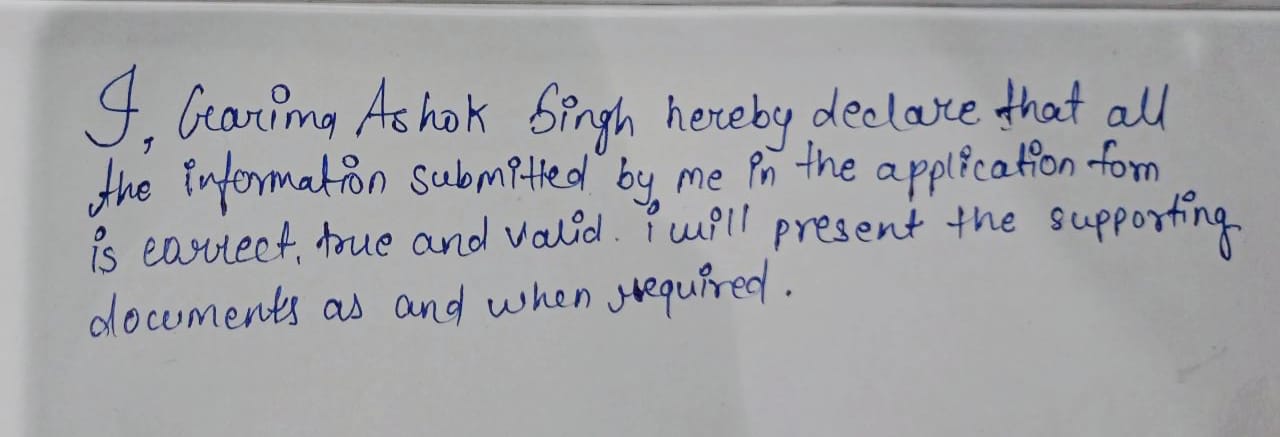 I, Garima Ashok Singh hereby declare that all
the information submitted by me in the application form
is correct, true and valid. i will present the supporting
documents as and when required.